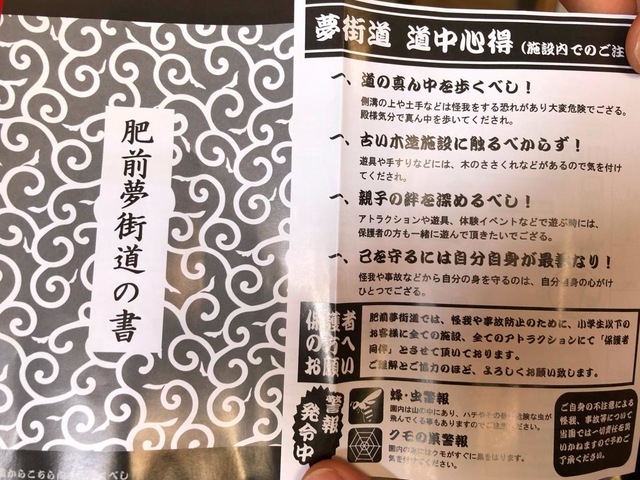 肥前夢街道の書
夢街道 道中心得 (施設内でのご注
一、道の真ん中を歩くべし！
側溝の上や土手などは怪我をする恐れがあり大変危険でござる。
殿様気分で真ん中を歩いてくだされ。
一、古い木造施設に触るべからず！
遊具や手すりなどには、木のささくれなどがあるので気を付け
てくだされ。
一、親子の絆を深めるべし！
アトラクションや遊具、体験イベントなどで遊ぶ時には、
保護者の方も一緒に遊んで頂きたいでござる。
一、己を守るには自分自身が最善なり！
怪我や事故などから自分の身を守るのは、自分自身の心がけ
ひとつでござる。
保護者
の方へ
お願い
肥前夢街道では、怪我や事故防止のために、小学生以下の
お客様に全ての施設、全てのアトラクションにて「保護者
同伴」とさせて頂いております。
ご理解とご協力のほど、よろしくお願い致します。
警報
発令中
蜂・虫警報
園内は山の中にあり、ハチやその他危険な虫が
飛んでくる事もありますのでご注意ください。
クモの巣警報
園内の為にはクモがすぐに巣をはります。
気を付けてください。
ご自身の不注意による
怪我、事故等について
当園では一切責任を負
いかねますので予めご
了承ください。